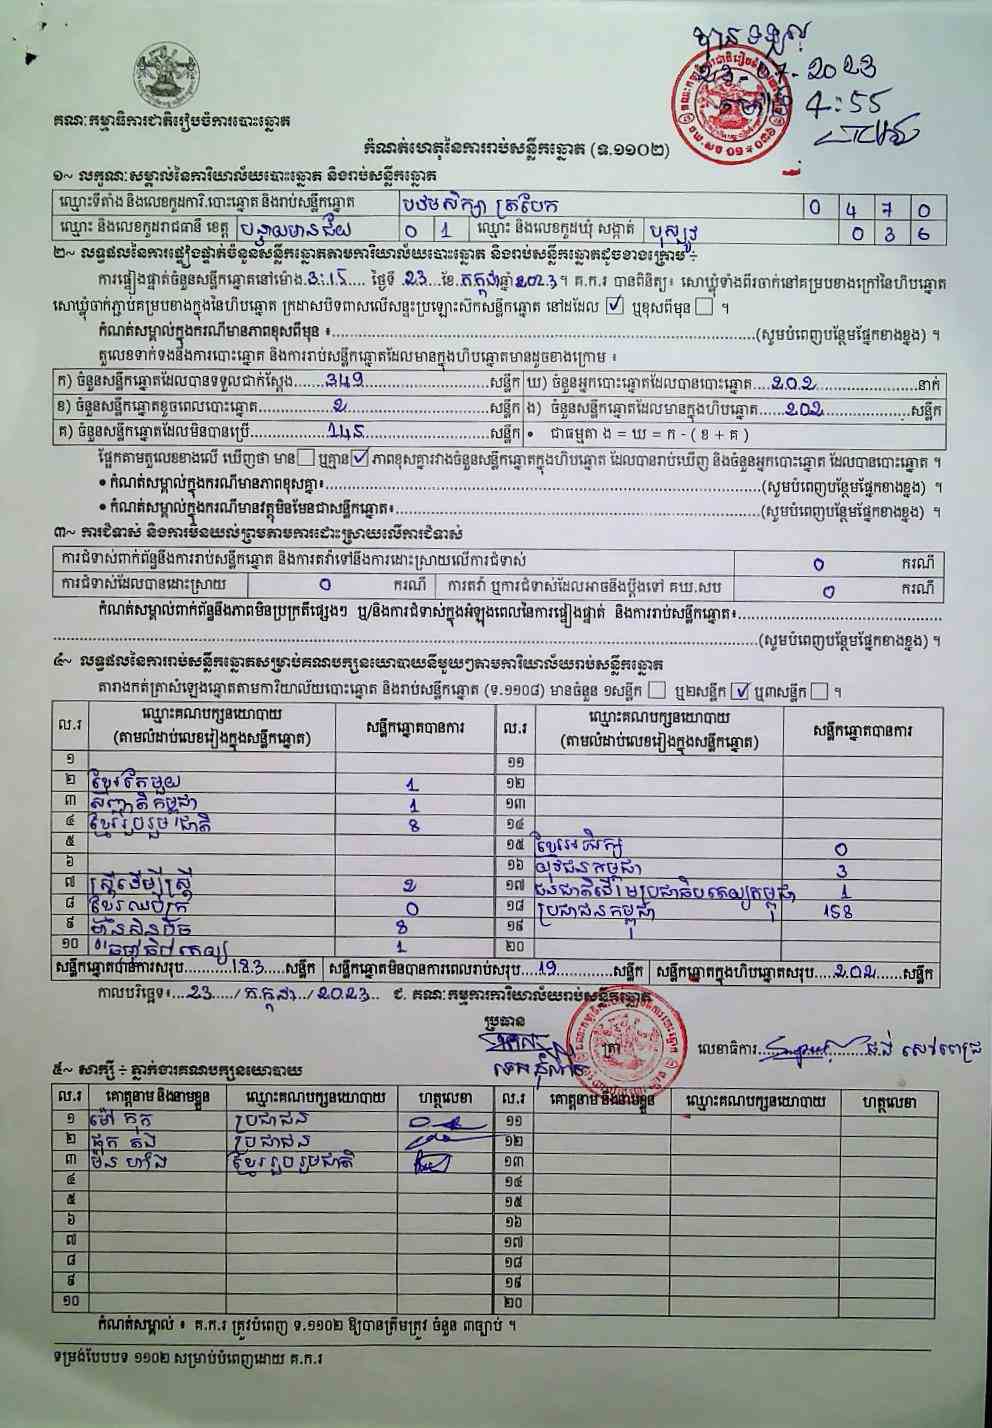 បានទទួល
23-07-2023
ម៉ោង 4:55
គណៈកម្មាធិការជាតិរៀបចំការបោះឆ្នោត
កំណត់ហេតុនៃការរាប់សន្លឹកឆ្នោត (ទ.១១០២)
១~ លក្ខណៈសម្គាល់នៃការិយាល័យបោះឆ្នោត និងរាប់សន្លឹកឆ្នោត
ឈ្មោះទីតាំង និងលេខកូដការិ.បោះឆ្នោត និងរាប់សន្លឹកឆ្នោត បឋមសិក្សា ត្របែក 0 4 7 0
ឈ្មោះ និងលេខកូដរាជធានី ខេត្ត បន្ទាយមានជ័យ 0 1 ឈ្មោះ និងលេខកូដឃុំ សង្កាត់ បុស្បូវ 0 3 6
២~ លទ្ធផលនៃការផ្ទៀងផ្ទាត់ចំនួនសន្លឹកឆ្នោតតាមការិយាល័យបោះឆ្នោត និងរាប់សន្លឹកឆ្នោតដូចខាងក្រោម ÷
ការផ្ទៀងផ្ទាត់ចំនួនសន្លឹកឆ្នោតនៅម៉ោង 3:15 ថ្ងៃទី 23 ខែ កក្កដា ឆ្នាំ 2023 ។ គ.ក.រ បានពិនិត្យ៖ សោឃ្លុំទាំងពីរចាក់នៅគម្របខាងក្រៅនៃហិបឆ្នោត
សោឃ្លុំចាក់ភ្ជាប់គម្របខាងក្នុងនៃហិបឆ្នោត ក្រដាសបិទពាសលើសន្ទះប្រឡោះស៊កសន្លឹកឆ្នោត នៅដដែល ☑ ឬខុសពីមុន ☐ ។
កំណត់សម្គាល់ក្នុងករណីមានភាពខុសពីមុន ៖ (សូមបំពេញបន្ថែមផ្នែកខាងខ្នង) ។
តួលេខទាក់ទងនឹងការបោះឆ្នោត និងការរាប់សន្លឹកឆ្នោតដែលមានក្នុងហិបឆ្នោតមានដូចខាងក្រោម ៖
ក) ចំនួនសន្លឹកឆ្នោតដែលបានទទួលជាក់ស្តែង 349 សន្លឹក ឃ) ចំនួនអ្នកបោះឆ្នោតដែលបានបោះឆ្នោត 202 នាក់
ខ) ចំនួនសន្លឹកឆ្នោតខូចពេលបោះឆ្នោត 2 សន្លឹក ង) ចំនួនសន្លឹកឆ្នោតដែលមានក្នុងហិបឆ្នោត 202 សន្លឹក
គ) ចំនួនសន្លឹកឆ្នោតដែលមិនបានប្រើ 145 សន្លឹក • ជាធម្មតា ង = ឃ = ក - ( ខ + គ )
ផ្អែកតាមតួលេខខាងលើ ឃើញថា មាន ☐ ឬគ្មាន ☑ ភាពខុសគ្នារវាងចំនួនសន្លឹកឆ្នោតក្នុងហិបឆ្នោត ដែលបានរាប់ឃើញ និងចំនួនអ្នកបោះឆ្នោត ដែលបានបោះឆ្នោត ។
• កំណត់សម្គាល់ក្នុងករណីមានភាពខុសគ្នា៖ (សូមបំពេញបន្ថែមផ្នែកខាងខ្នង) ។
• កំណត់សម្គាល់ក្នុងករណីមានវត្ថុមិនមែនជាសន្លឹកឆ្នោត៖ (សូមបំពេញបន្ថែមផ្នែកខាងខ្នង) ។
៣~ ការជំទាស់ និងការមិនយល់ព្រមតាមការដោះស្រាយលើការជំទាស់
ការជំទាស់ពាក់ព័ន្ធនឹងការរាប់សន្លឹកឆ្នោត និងការតវ៉ាទៅនឹងការដោះស្រាយលើការជំទាស់ 0 ករណី
ការជំទាស់ដែលបានដោះស្រាយ 0 ករណី ការតវ៉ា ឬការជំទាស់ដែលអាចនឹងប្តឹងទៅ គឃ.សប 0 ករណី
កំណត់សម្គាល់ពាក់ព័ន្ធនឹងភាពមិនប្រក្រតីផ្សេងៗ ឬ/និងការជំទាស់ក្នុងអំឡុងពេលនៃការផ្ទៀងផ្ទាត់ និងការរាប់សន្លឹកឆ្នោត៖
(សូមបំពេញបន្ថែមផ្នែកខាងខ្នង) ។
៤~ លទ្ធផលនៃការរាប់សន្លឹកឆ្នោតសម្រាប់គណបក្សនយោបាយនីមួយៗតាមការិយាល័យរាប់សន្លឹកឆ្នោត
តារាងកត់ត្រាសំឡេងឆ្នោតតាមការិយាល័យបោះឆ្នោត និងរាប់សន្លឹកឆ្នោត (ទ.១១០៨) មានចំនួន ១សន្លឹក ☐ ឬ២សន្លឹក ☑ ឬ៣សន្លឹក ☐ ។
ល.រ ឈ្មោះគណបក្សនយោបាយ (តាមលំដាប់លេខរៀងក្នុងសន្លឹកឆ្នោត) សន្លឹកឆ្នោតបានការ ល.រ ឈ្មោះគណបក្សនយោបាយ (តាមលំដាប់លេខរៀងក្នុងសន្លឹកឆ្នោត) សន្លឹកឆ្នោតបានការ
១ ១១
២ ខ្មែរតែមួយ 1 ១២
៣ សញ្ជាតិកម្ពុជា 1 ១៣
៤ ខ្មែររួបរួមជាតិ 8 ១៤
៥ ១៥ ខ្មែរអភិរក្ស 0
៦ ១៦ យុវជនកម្ពុជា 3
៧ ស្ត្រីដើម្បីស្ត្រី 2 ១៧ ជនជាតិដើមប្រជាធិបតេយ្យកម្ពុជា 1
៨ ខ្មែរឈប់ក្រ 0 ១៨ ប្រជាជនកម្ពុជា 158
៩ ហ្វ៊ុនស៊ិនប៉ិច 8 ១៩
១០ ធម្មាធិបតេយ្យ 1 ២០
សន្លឹកឆ្នោតបានការសរុប 183 សន្លឹក សន្លឹកឆ្នោតមិនបានការពេលរាប់សរុប 19 សន្លឹក សន្លឹកឆ្នោតក្នុងហិបឆ្នោតសរុប 202 សន្លឹក
កាលបរិច្ឆេទ៖ 23 / កក្កដា / 2023 ជ. គណៈកម្មការការិយាល័យរាប់សន្លឹកឆ្នោត
ប្រធាន
ត្រា លេខាធិការ ផង់ សៅពេជ្រ
៥~ សាក្សី ÷ ភ្នាក់ងារគណបក្សនយោបាយ
ល.រ គោត្តនាម និងនាមខ្លួន ឈ្មោះគណបក្សនយោបាយ ហត្ថលេខា ល.រ គោត្តនាម និងនាមខ្លួន ឈ្មោះគណបក្សនយោបាយ ហត្ថលេខា
១ ម៉ៅ កុក ប្រជាជន ១១
២ ផុក តង ប្រជាជន ១២
៣ ម៉ន ហាំង ខ្មែររួបរួមជាតិ ១៣
៤ ១៤
៥ ១៥
៦ ១៦
៧ ១៧
៨ ១៨
៩ ១៩
១០ ២០
កំណត់សម្គាល់ ៖ គ.ក.រ ត្រូវបំពេញ ទ.១១០២ ឱ្យបានត្រឹមត្រូវ ចំនួន ៣ច្បាប់ ។
ទម្រង់បែបបទ ១១០២ សម្រាប់បំពេញដោយ គ.ក.រ